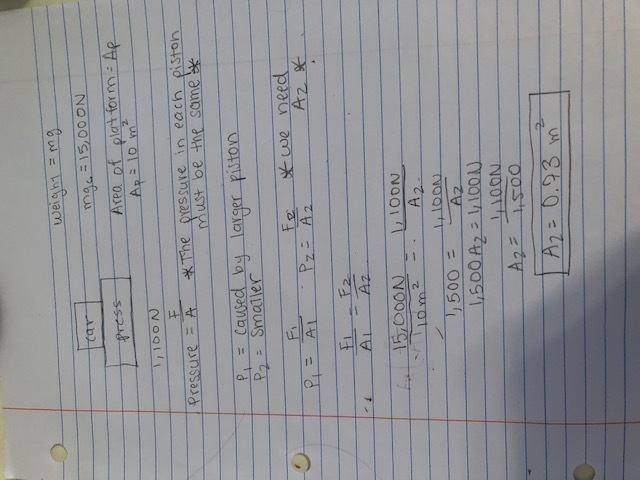 weight = mg
car
mg = 15,000N
press
Area of platform = Ap
Ap = 10 m²
1,100N
Pressure = F/A *The pressure in each piston
must be the same*
P₁ = caused by larger piston
P₂ = smaller
P₁ = F₁/A₁ P₂ = F₂/A₂ *we need
A₂*
∴ F₁/A₁ = F₂/A₂
15,000N/10m² = 1,100N/A₂
1,500 = 1,100N/A₂
1,500A₂ = 1,100N
A₂ = 1,100N/1,500
A₂ = 0.73 m²